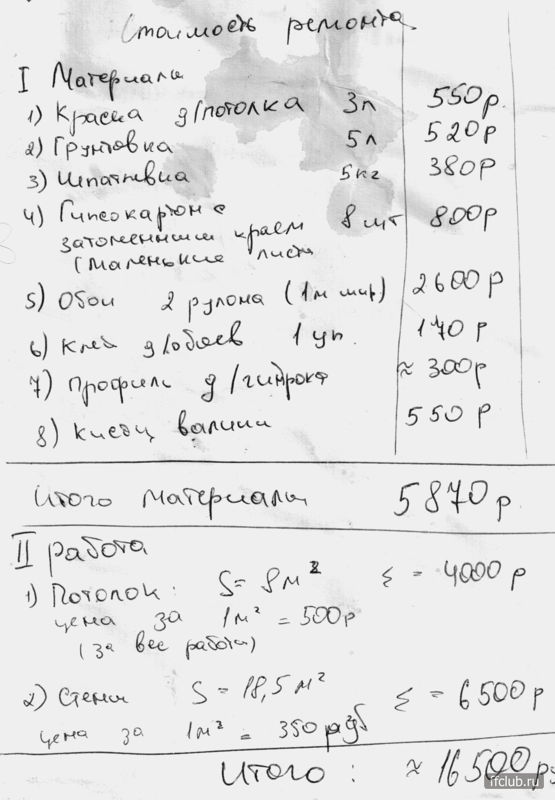 Стоимость ремонта
I Материалы
1) Краска д/потолка 3л 550р.
2) Грунтовка 5л 520р
3) Шпатлевка 5кг 380р
4) Гипсокартон с
затоненным краем 8 шт 800р
(маленькие листы
5) Обои 2 рулона (1м шир) 2600р
6) Клей д/обоев 1 уп. 170 р
7) Профиль д/гипрока ≈ 300р
8) Кисти, валики 550 р
Итого материалы 5870р.
II Работа
1) Потолок: S= 8м² Σ = 4000 р
цена за 1м² = 500р
(за все работы)
2) Стены S = 18,5 м² Σ = 6500р
цена за 1м² = 350 руб
Итого: ≈ 16500р
ifclub.ru